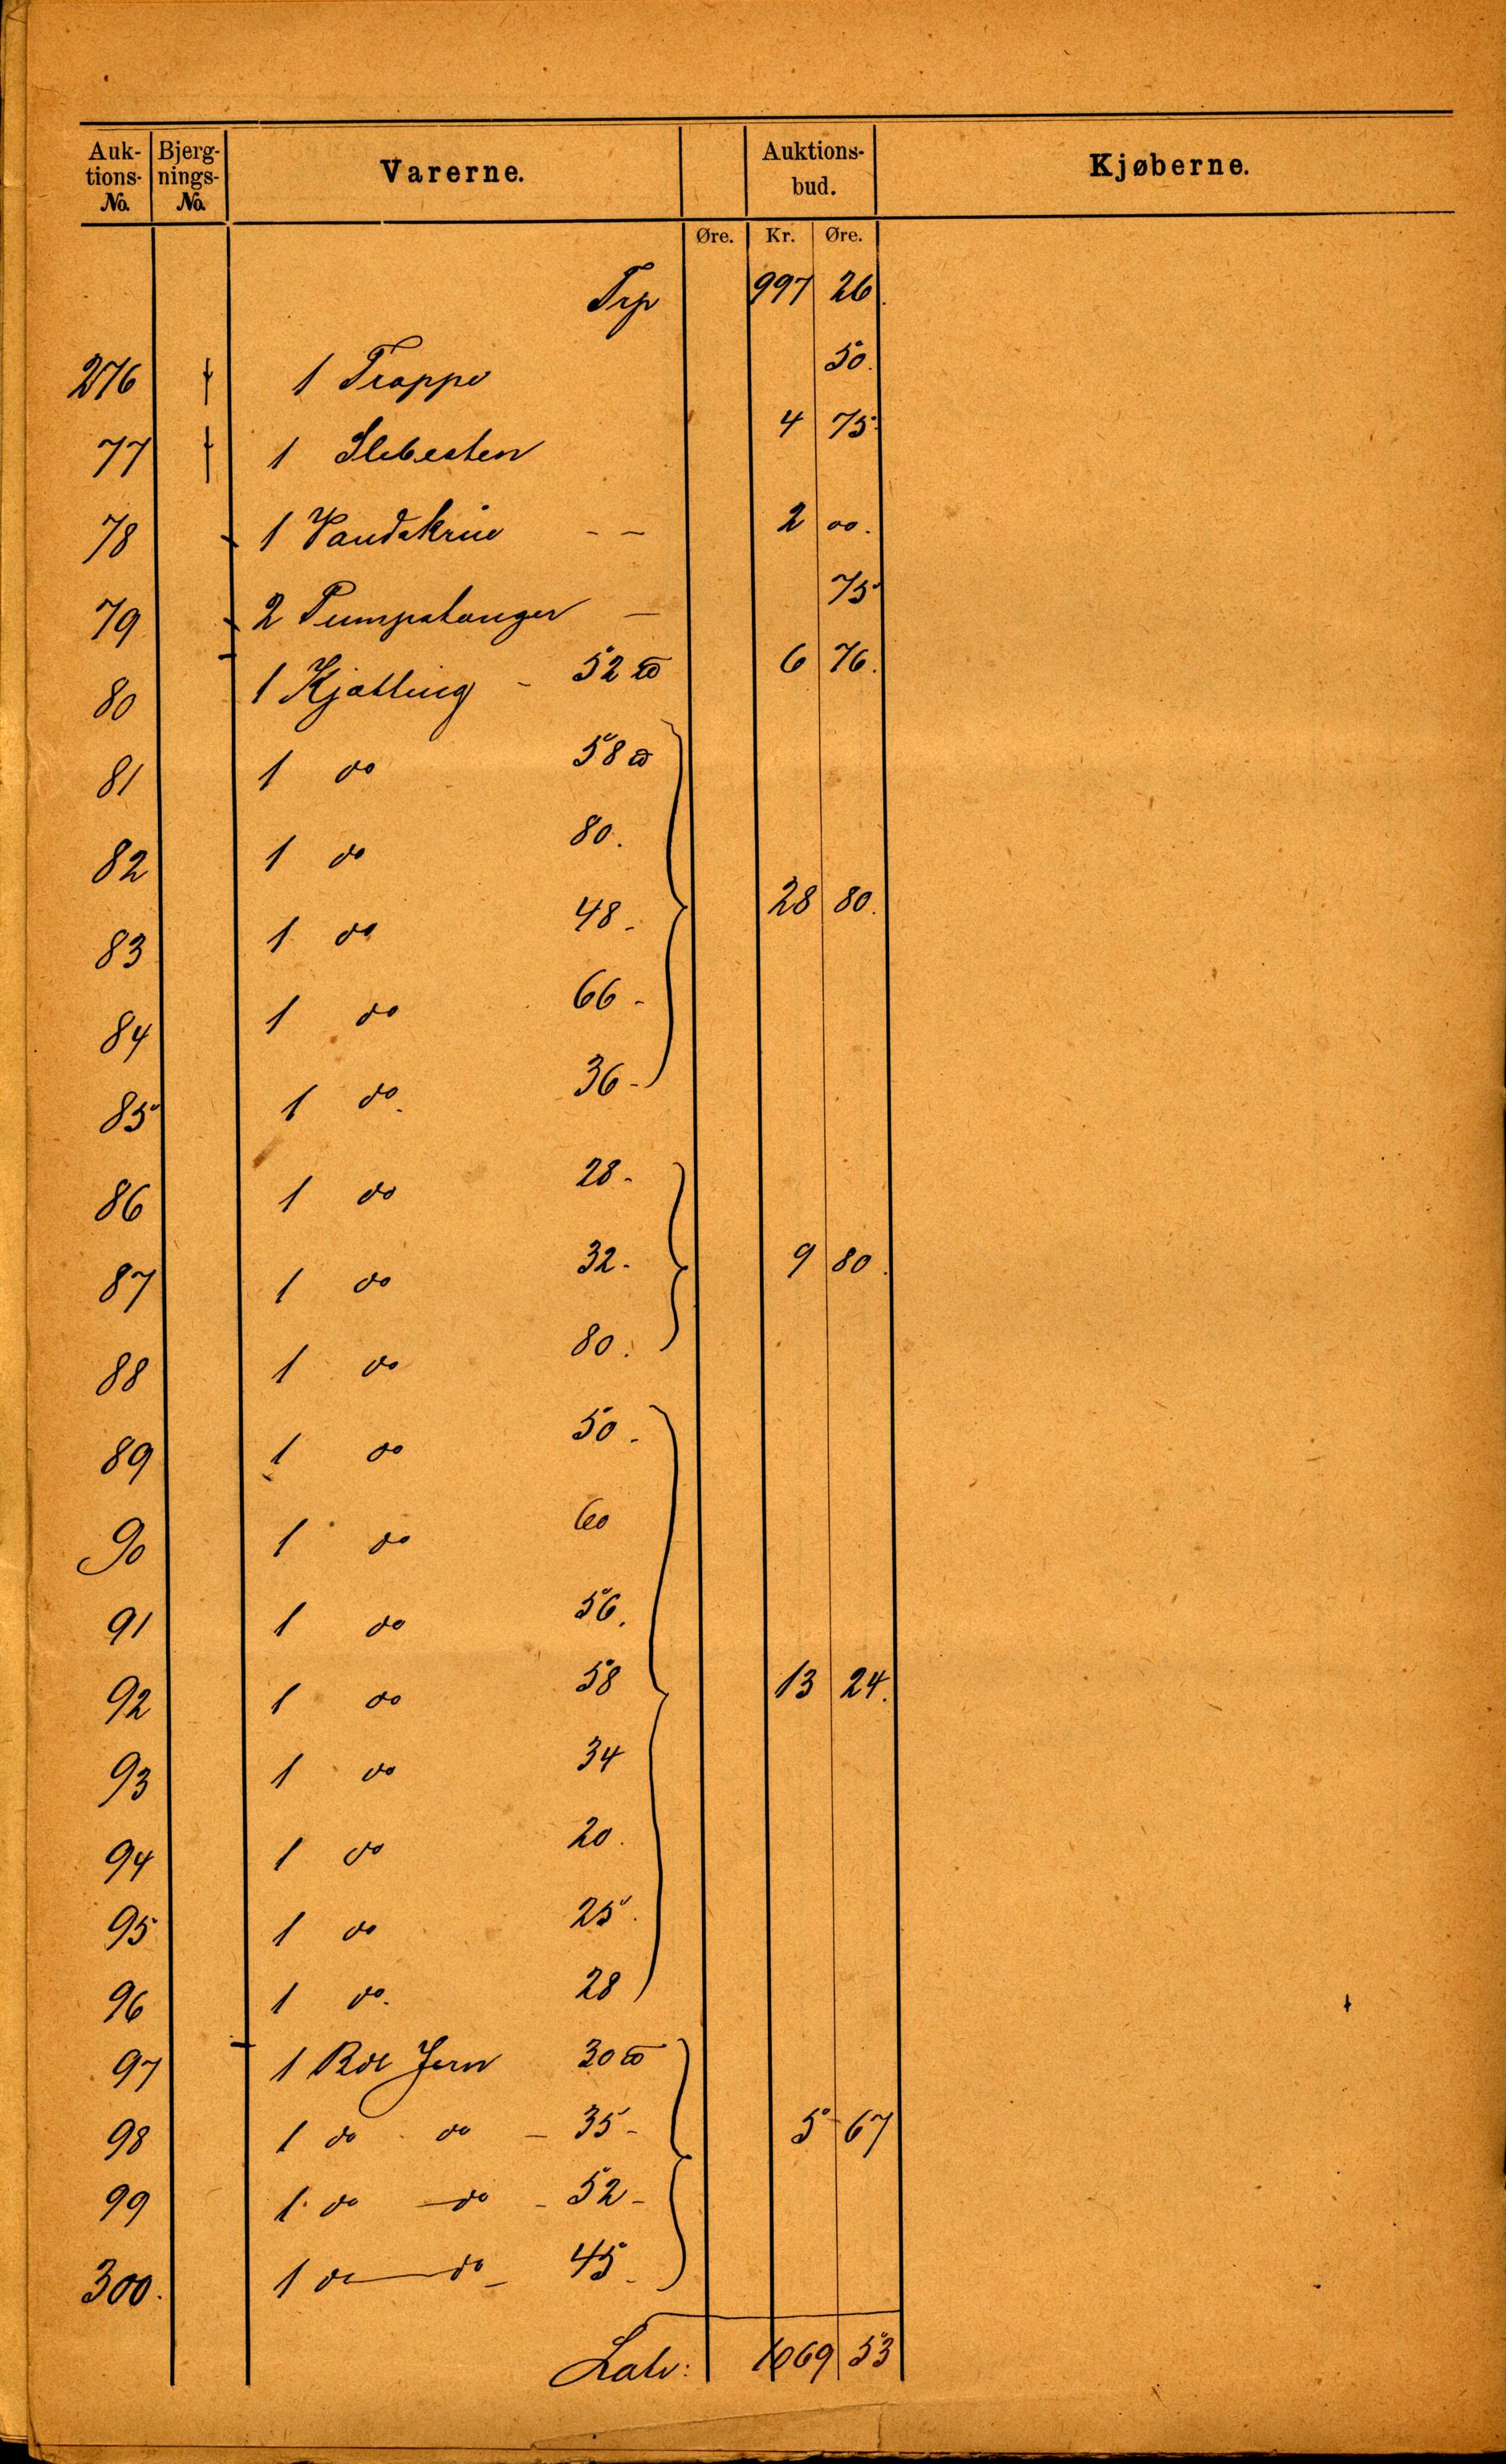 Auk- Bjerg- Varerne. Auktions- Kjøberne.
tions- nings- bud.
No. No.
Øre. Kr. Øre.
Trp 997 26.
276 1 Trappe 50.
77 1 Slibesten 4 75
78 1 Vandskrin - - 2 00.
79 2 Pumpstanger - 75
80 1 Kjætting - 52 ℔ 6 76.
81 1 do 58 ℔
82 1 do 80.
83 1 do 48 - 28 80.
84 1 do 66 -
85 1 do. 36 -
86 1 do 28 -
87 1 do 32 - 9 80.
88 1 do 80.
89 1 do 50 -
90 1 do 60
91 1 do 56.
92 1 do 58 13 24.
93 1 do 34
94 1 do 20.
95 1 do 25.
96 1 do. 28
97 1 Bdt Jern 30 ℔
98 1 do do - 35 - 5 67
99 1 do do - 52 -
300. 1 do do - 45 -
Latr: 1069 53